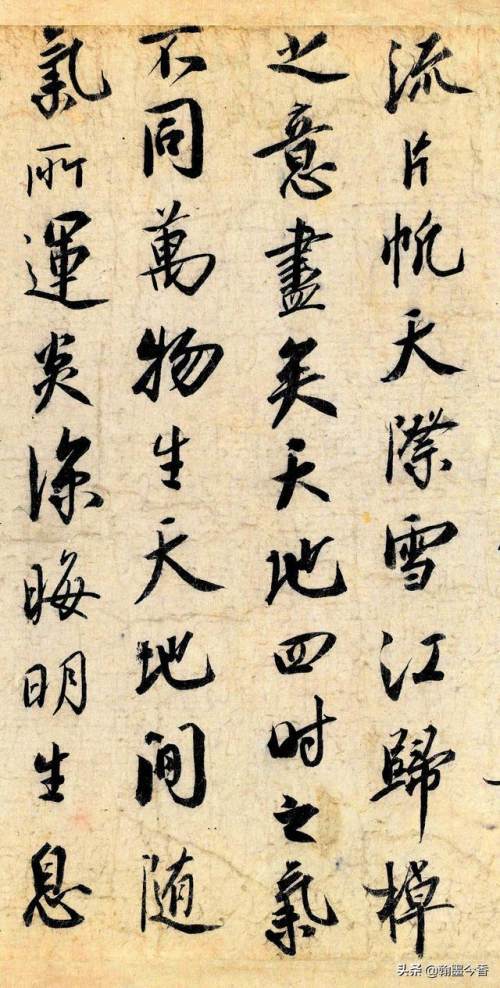 流片帆天際雪江歸棹
之意盡矣天地四时之氣
不同萬物生天地間随
氣所運炎凉晦明生息
头条 @翰墨今香